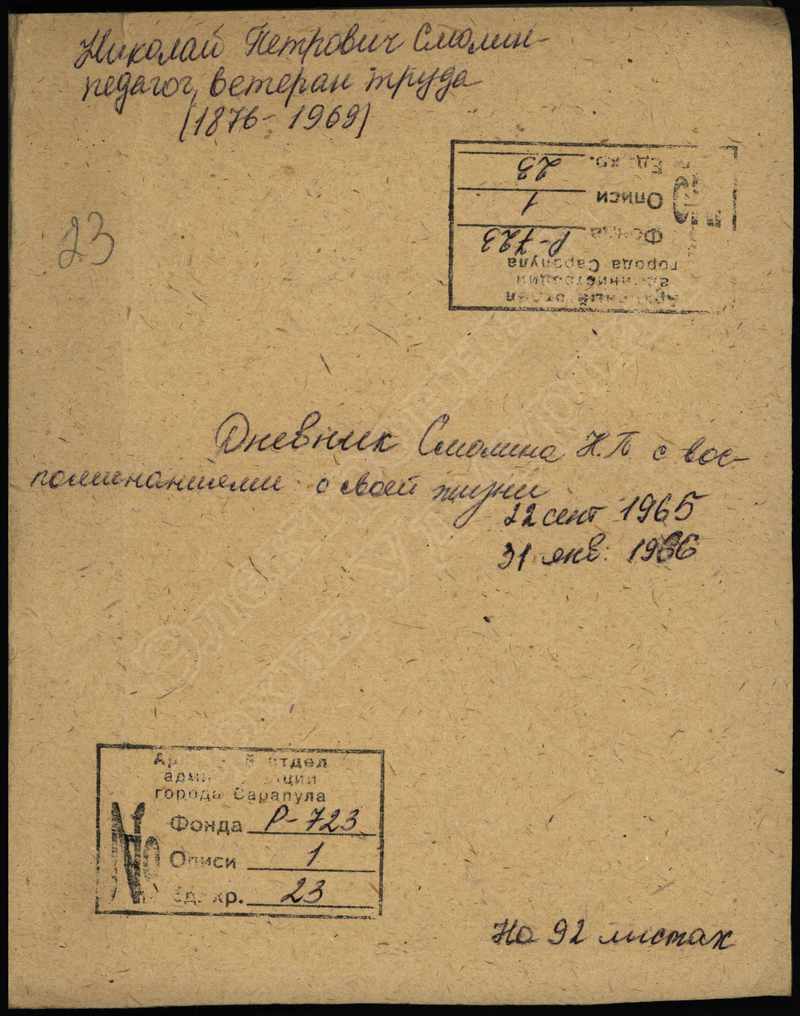 Николай Петрович Смолин-
педагог, ветеран труда
(1876-1969)
Ед. хр. 23
Описи 1
Фонда Р-723
города Сарапула
администрации
Архивный отдел
23
Дневник Смолина Н.П с вос-
поминаниями о своей жизни
22 сент 1965
31 янв. 1966
Архивный отдел
администрации
города Сарапула
№
Фонда Р-723
Описи 1
Ед. хр. 23
На 92 листах